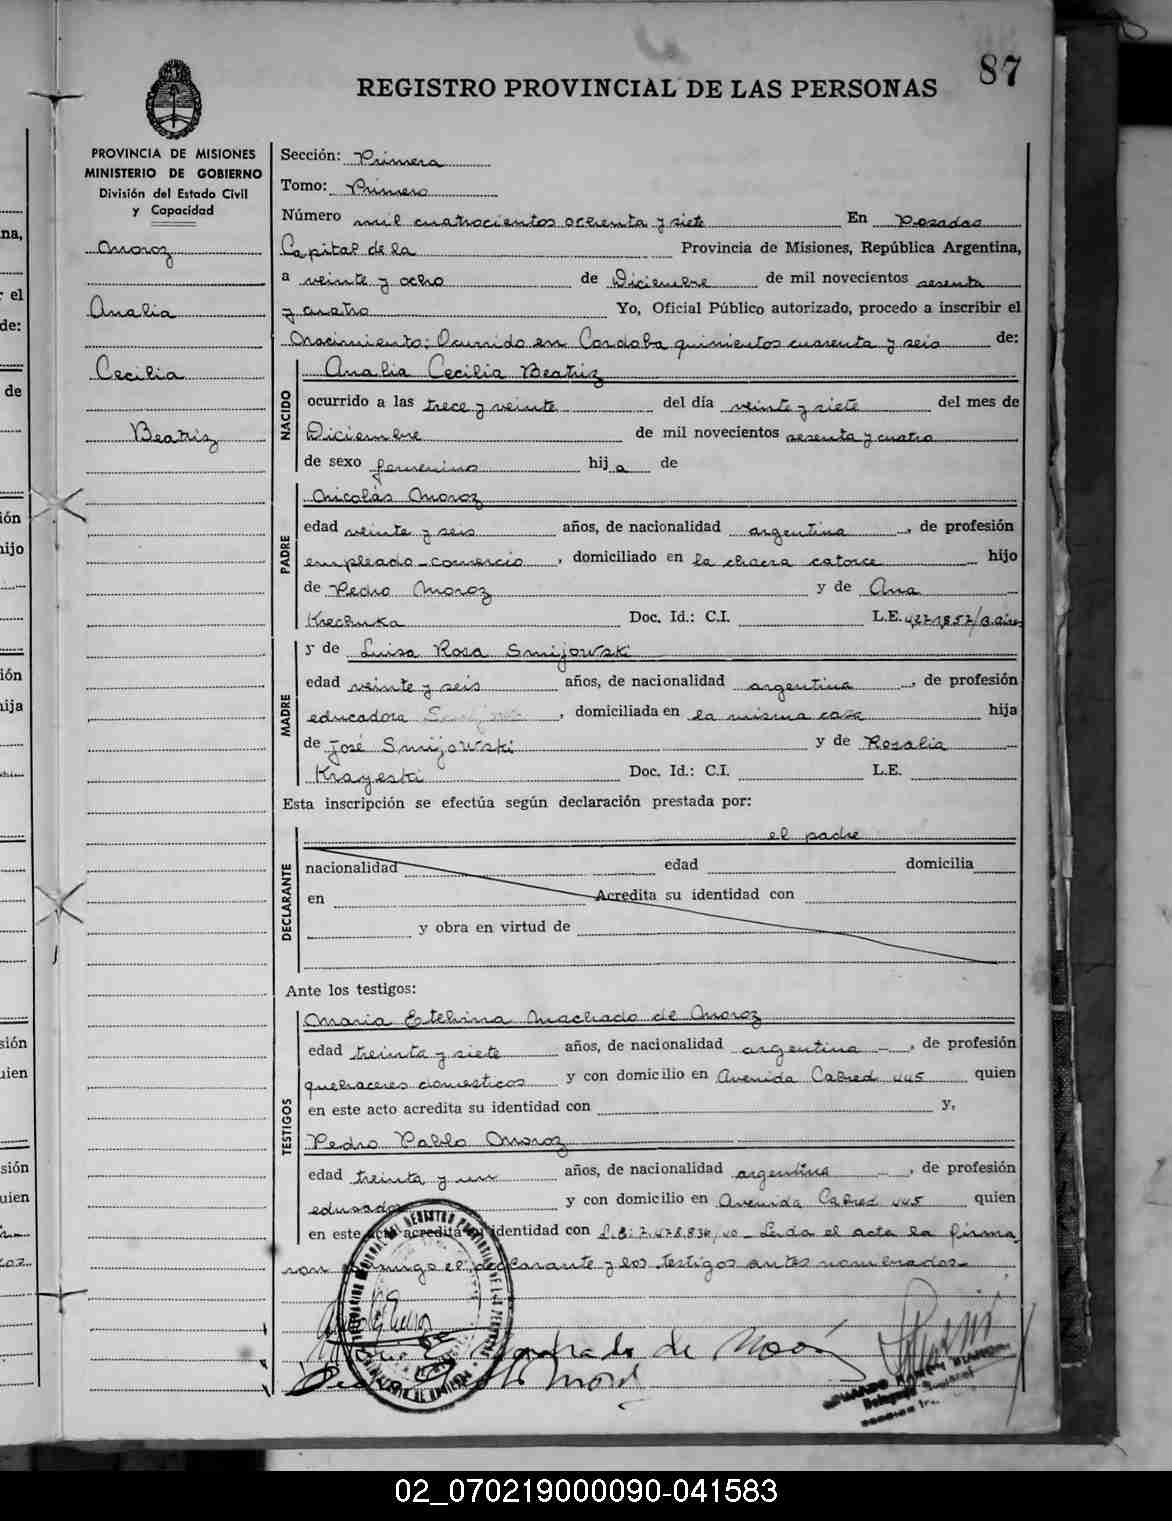 87
REGISTRO PROVINCIAL DE LAS PERSONAS
PROVINCIA DE MISIONES
MINISTERIO DE GOBIERNO
División del Estado Civil
y Capacidad
Moroz
Analia
Cecilia
Beatriz
Sección: Primera
Tomo: Primero
Número mil cuatrocientos ochenta y siete En Posadas
Capital de la Provincia de Misiones, República Argentina,
a veinte y ocho de Diciembre de mil novecientos sesenta
y cuatro Yo, Oficial Público autorizado, procedo a inscribir el
Nacimiento: Ocurrido en Cordoba quinientos cuarenta y seis de:
NACIDO
Analia Cecilia Beatriz
ocurrido a las trece y veinte del día veinte y siete del mes de
Diciembre de mil novecientos sesenta y cuatro
de sexo femenino hija de
PADRE
Nicolás Moroz
edad veinte y seis años, de nacionalidad argentina, de profesión
empleado comercio, domiciliado en la chacra catorce hijo
de Pedro Moroz y de Ana
Krechuka Doc. Id.: C.I. L.E.
MADRE
y de Luisa Rosa Smijowski
edad veinte y seis años, de nacionalidad argentina, de profesión
educadora, domiciliada en la misma casa hija
de José Smijowski y de Rosalia
Krayeski Doc. Id.: C.I. L.E.
Esta inscripción se efectúa según declaración prestada por:
DECLARANTE
el padre
nacionalidad edad domicilia
en Acredita su identidad con
y obra en virtud de
Ante los testigos:
TESTIGOS
Maria Etelvina Machado de Moroz
edad treinta y siete años, de nacionalidad argentina, de profesión
quehaceres domesticos y con domicilio en Avenida Cabred 445 quien
en este acto acredita su identidad con y,
Pedro Pablo Moroz
edad treinta y un años, de nacionalidad argentina, de profesión
educador y con domicilio en Avenida Cabred 445 quien
en este acto acredita su identidad con Leida el acta la firma
ron conmigo el declarante y los testigos antes nombrados
Machado de Moroz
02_070219000090-041583